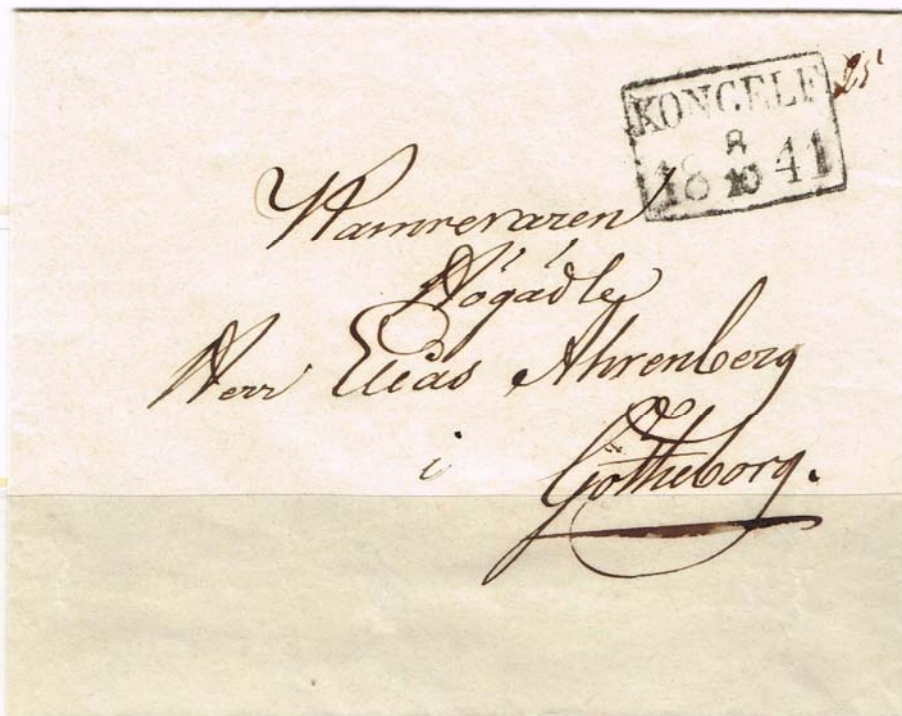 KONGELF
8
18 10 41
Hamrevaren
Högädle
Herr Elias Ahrenberg
i
Götheborg.